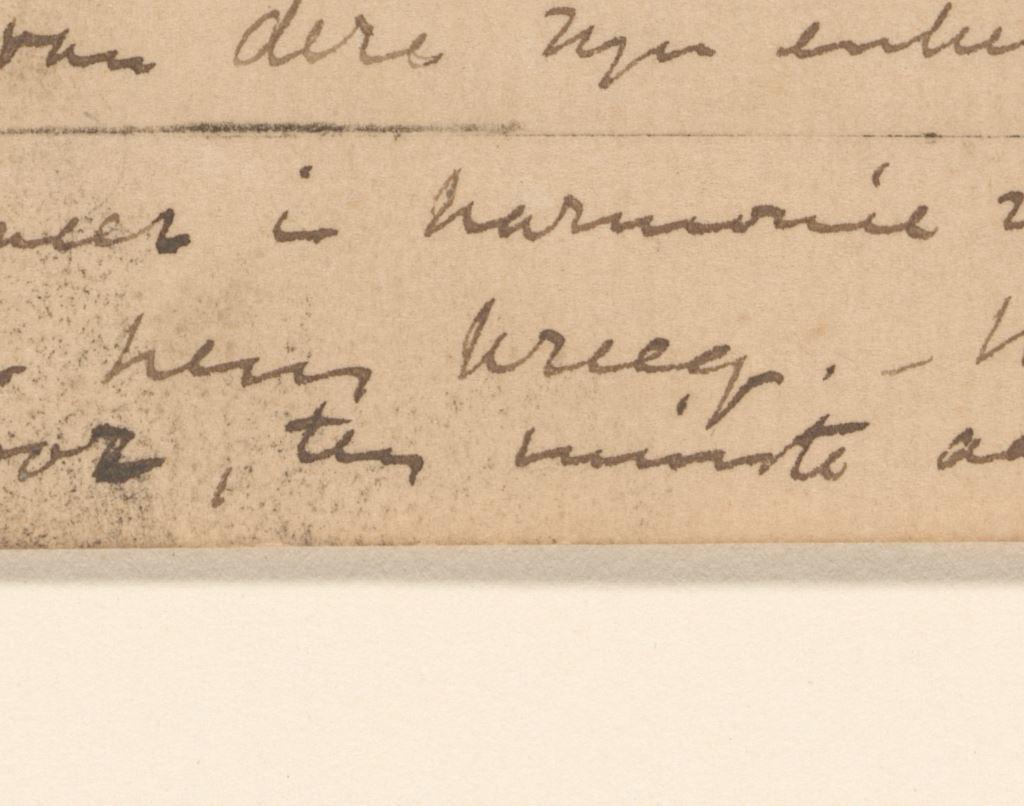 van dere zyn enke
meer in harmonie
hem kreeg. –
oor, ten minste